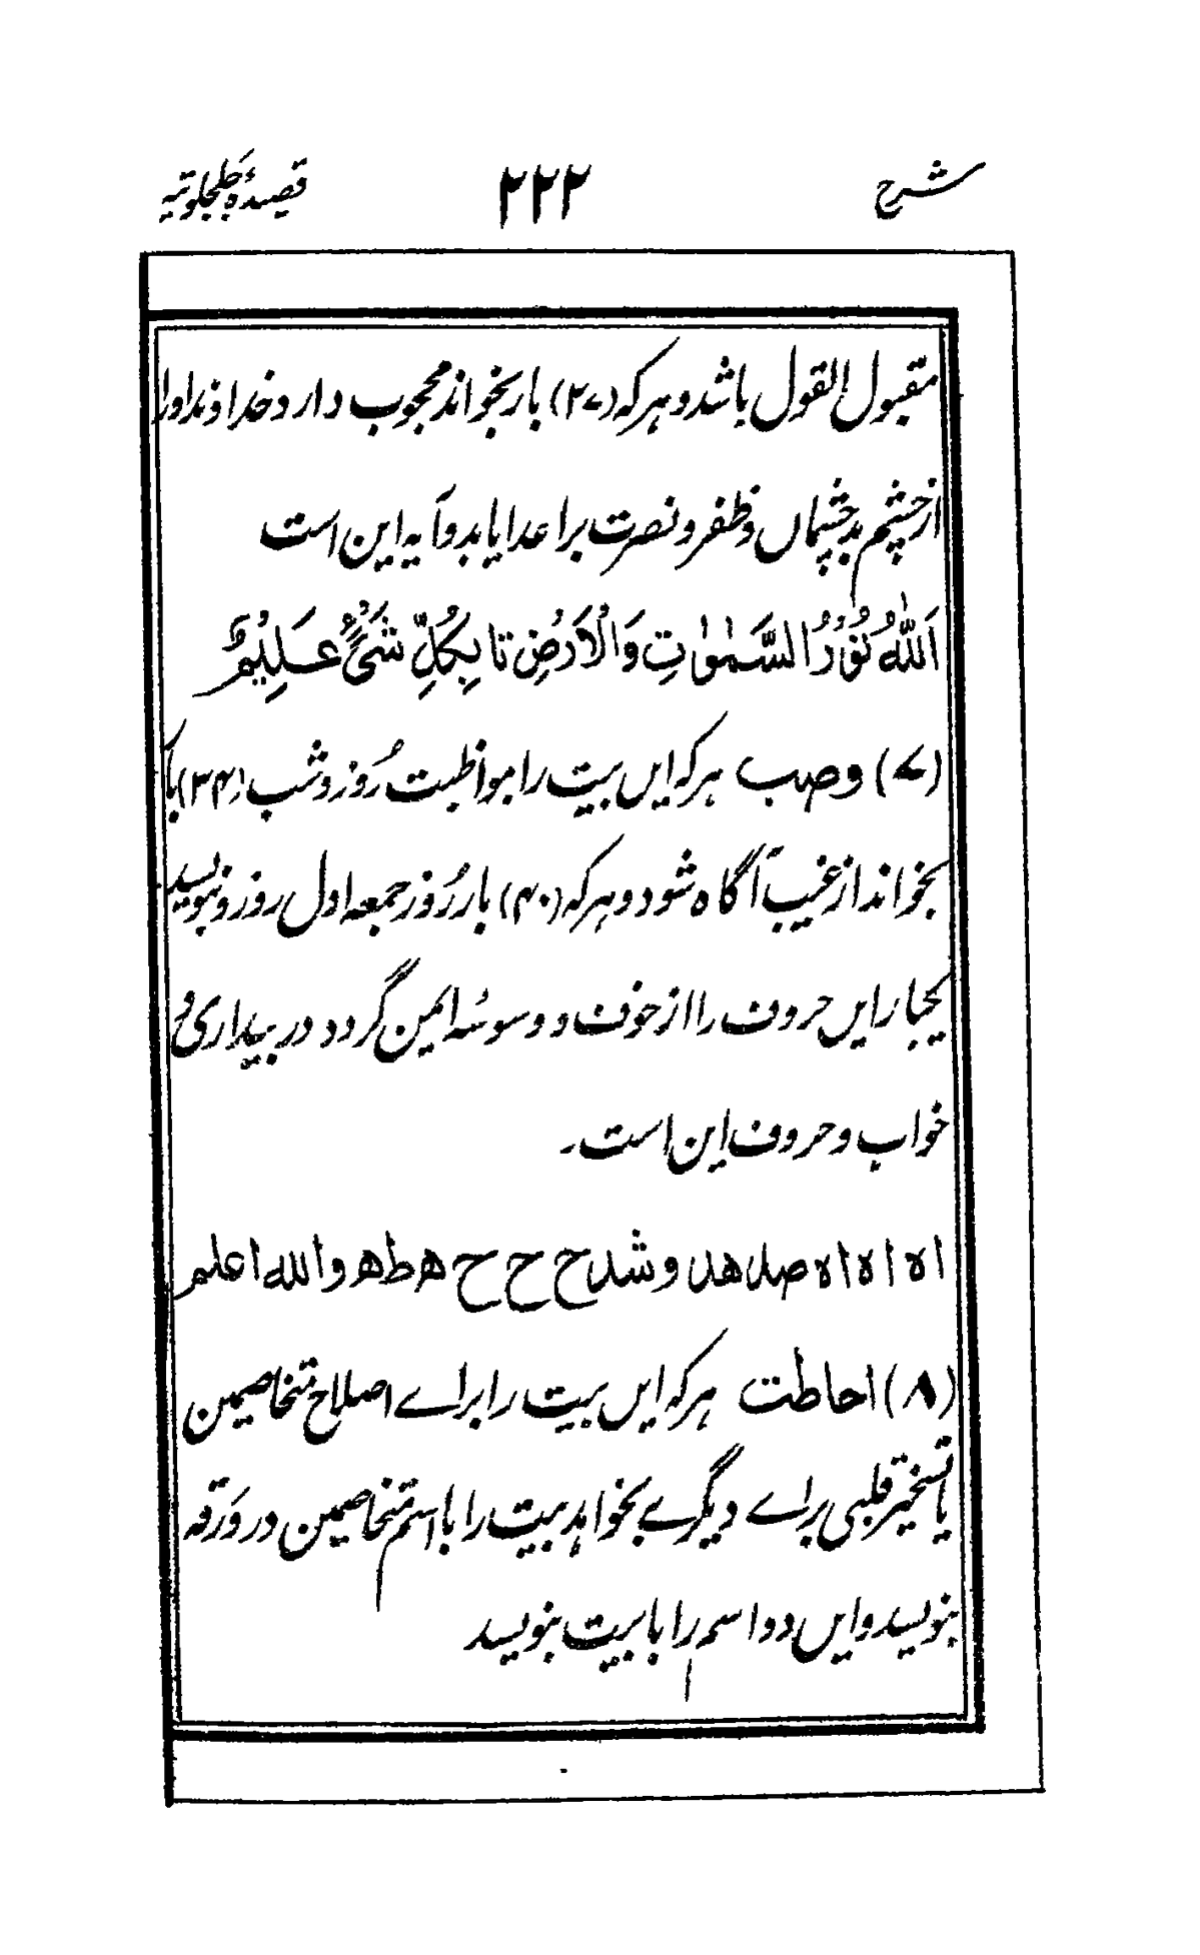 شرح ۲۲۲ قصیدهٔ جلجلوتیه
مقبول القول باشد و هرکه (۲۷) بار بخواند محجوب دارد خداوند او را
از چشم بد چشماں و ظفر و نصرت بر اعدا یابد و آیه این است
اَللّٰهُ نُوْرُ السَّمٰوٰتِ وَالْاَرْضِ تا بِكُلِّ شَیْءٍ عَلِیْمٌ
(۷) وصب هرکه ایں بیت را مواظبت رُوز و شب (۳۴) با
بخواند از غیب آگاه شود و هرکه (۴۰) بار رُوز جمعه اول روز و بنویسد
یکبار ایں حروف را از خوف و وسوسه ایمن گردد در بیداری و
خواب و حروف این است۔
ا ه ا ه ا ه صل هد و شدح ح ح ه ط ه والله اعلم
(۸) احاطت هرکه ایں بیت را براے اصلاح متخاصمین
یا تسخیر قلبی براے دیگرے بخواهد بیت را با اسم متخاصمین در ورقه
بنویسد و ایں دو اسم را با بیت بنویسد